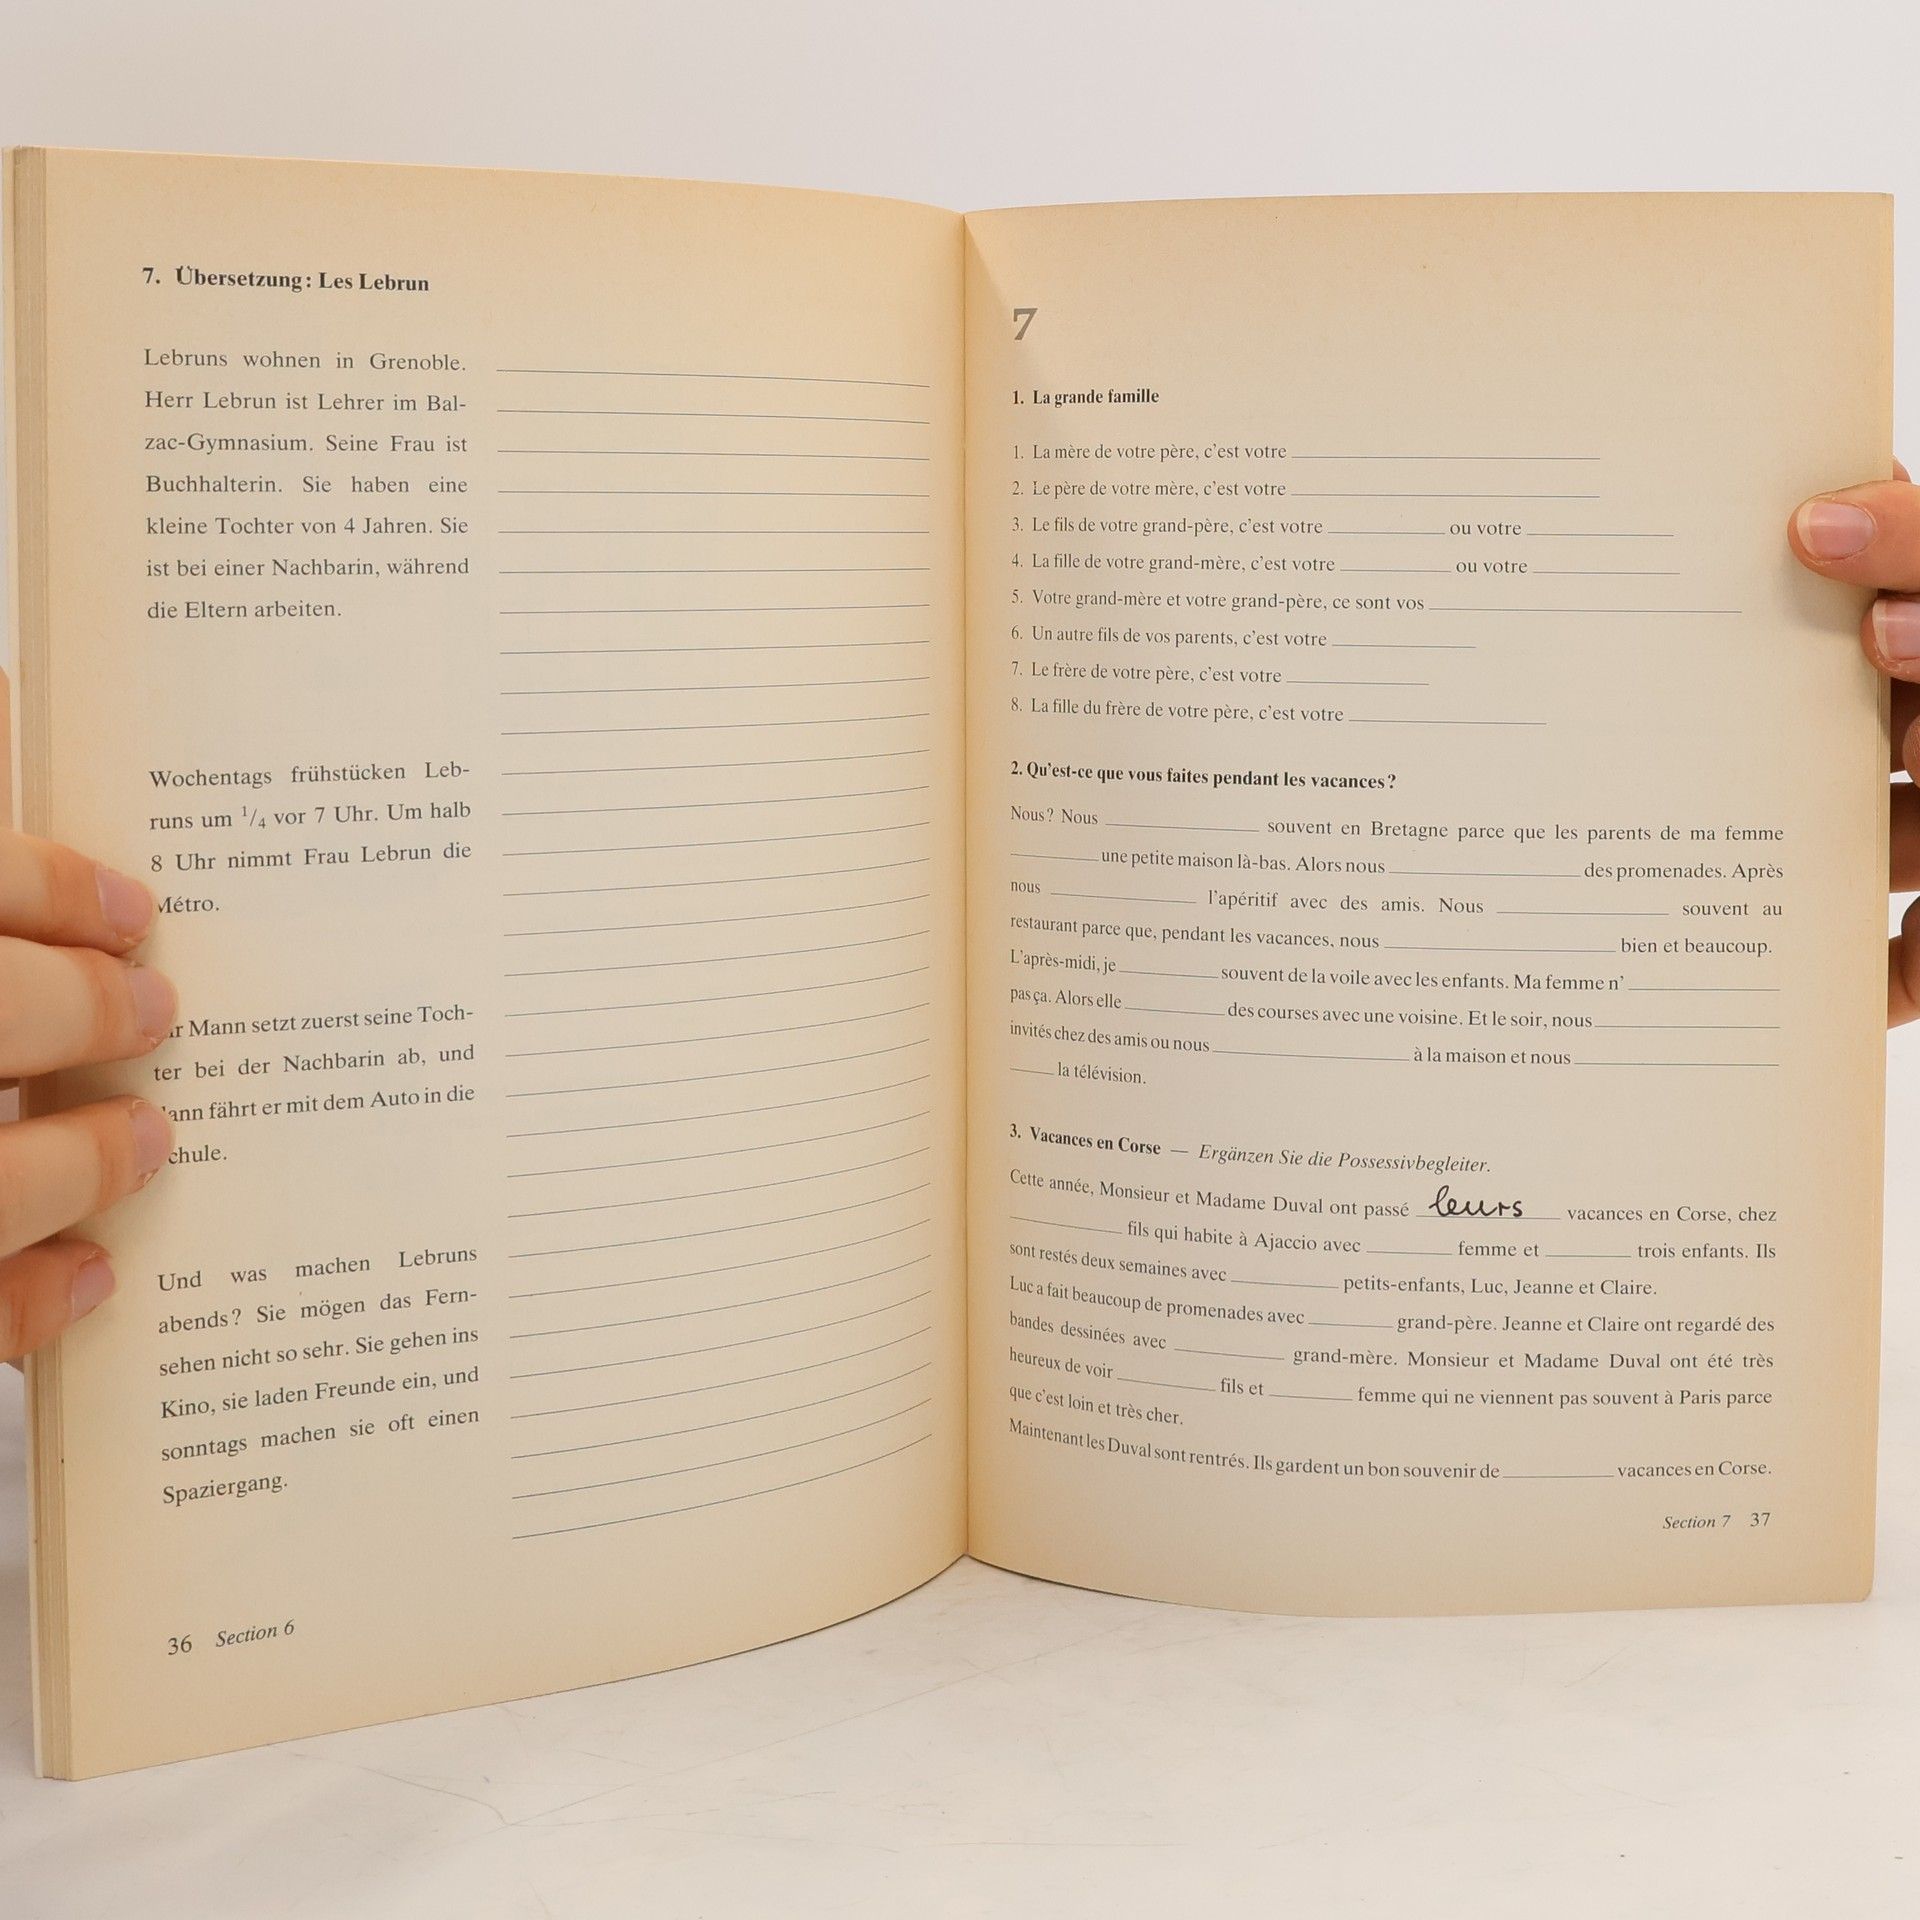 7. Übersetzung: Les Lebrun
Lebruns wohnen in Grenoble.
Herr Lebrun ist Lehrer im Bal-
zac-Gymnasium. Seine Frau ist
Buchhalterin. Sie haben eine
kleine Tochter von 4 Jahren. Sie
ist bei einer Nachbarin, während
die Eltern arbeiten.
Wochentags frühstücken Leb-
runs um 1/4 vor 7 Uhr. Um halb
8 Uhr nimmt Frau Lebrun die
Métro.
Mann setzt zuerst seine Toch-
ter bei der Nachbarin ab, und
fährt er mit dem Auto in die
chule.
Und was machen Lebruns
abends? Sie mögen das Fern-
sehen nicht so sehr. Sie gehen ins
Kino, sie laden Freunde ein, und
sonntags machen sie oft einen
Spaziergang.
36 Section 6
7
1. La grande famille
1. La mère de votre père, c'est votre
2. Le père de votre mère, c'est votre
3. Le fils de votre grand-père, c'est votre ou votre
4. La fille de votre grand-mère, c'est votre ou votre
5. Votre grand-mère et votre grand-père, ce sont vos
6. Un autre fils de vos parents, c'est votre
7. Le frère de votre père, c'est votre
8. La fille du frère de votre père, c'est votre
2. Qu'est-ce que vous faites pendant les vacances?
Nous? Nous souvent en Bretagne parce que les parents de ma femme
une petite maison là-bas. Alors nous des promenades. Après
nous l'apéritif avec des amis. Nous souvent au
restaurant parce que, pendant les vacances, nous bien et beaucoup.
L'après-midi, je souvent de la voile avec les enfants. Ma femme n'
pas ça. Alors elle des courses avec une voisine. Et le soir, nous
invités chez des amis ou nous à la maison et nous
la télévision.
3. Vacances en Corse — Ergänzen Sie die Possessivbegleiter.
Cette année, Monsieur et Madame Duval ont passé leurs vacances en Corse, chez
fils qui habite à Ajaccio avec femme et trois enfants. Ils
sont restés deux semaines avec petits-enfants, Luc, Jeanne et Claire.
Luc a fait beaucoup de promenades avec grand-père. Jeanne et Claire ont regardé des
bandes dessinées avec grand-mère. Monsieur et Madame Duval ont été très
heureux de voir fils et femme qui ne viennent pas souvent à Paris parce
que c'est loin et très cher.
Maintenant les Duval sont rentrés. Ils gardent un bon souvenir de vacances en Corse.
Section 7 37